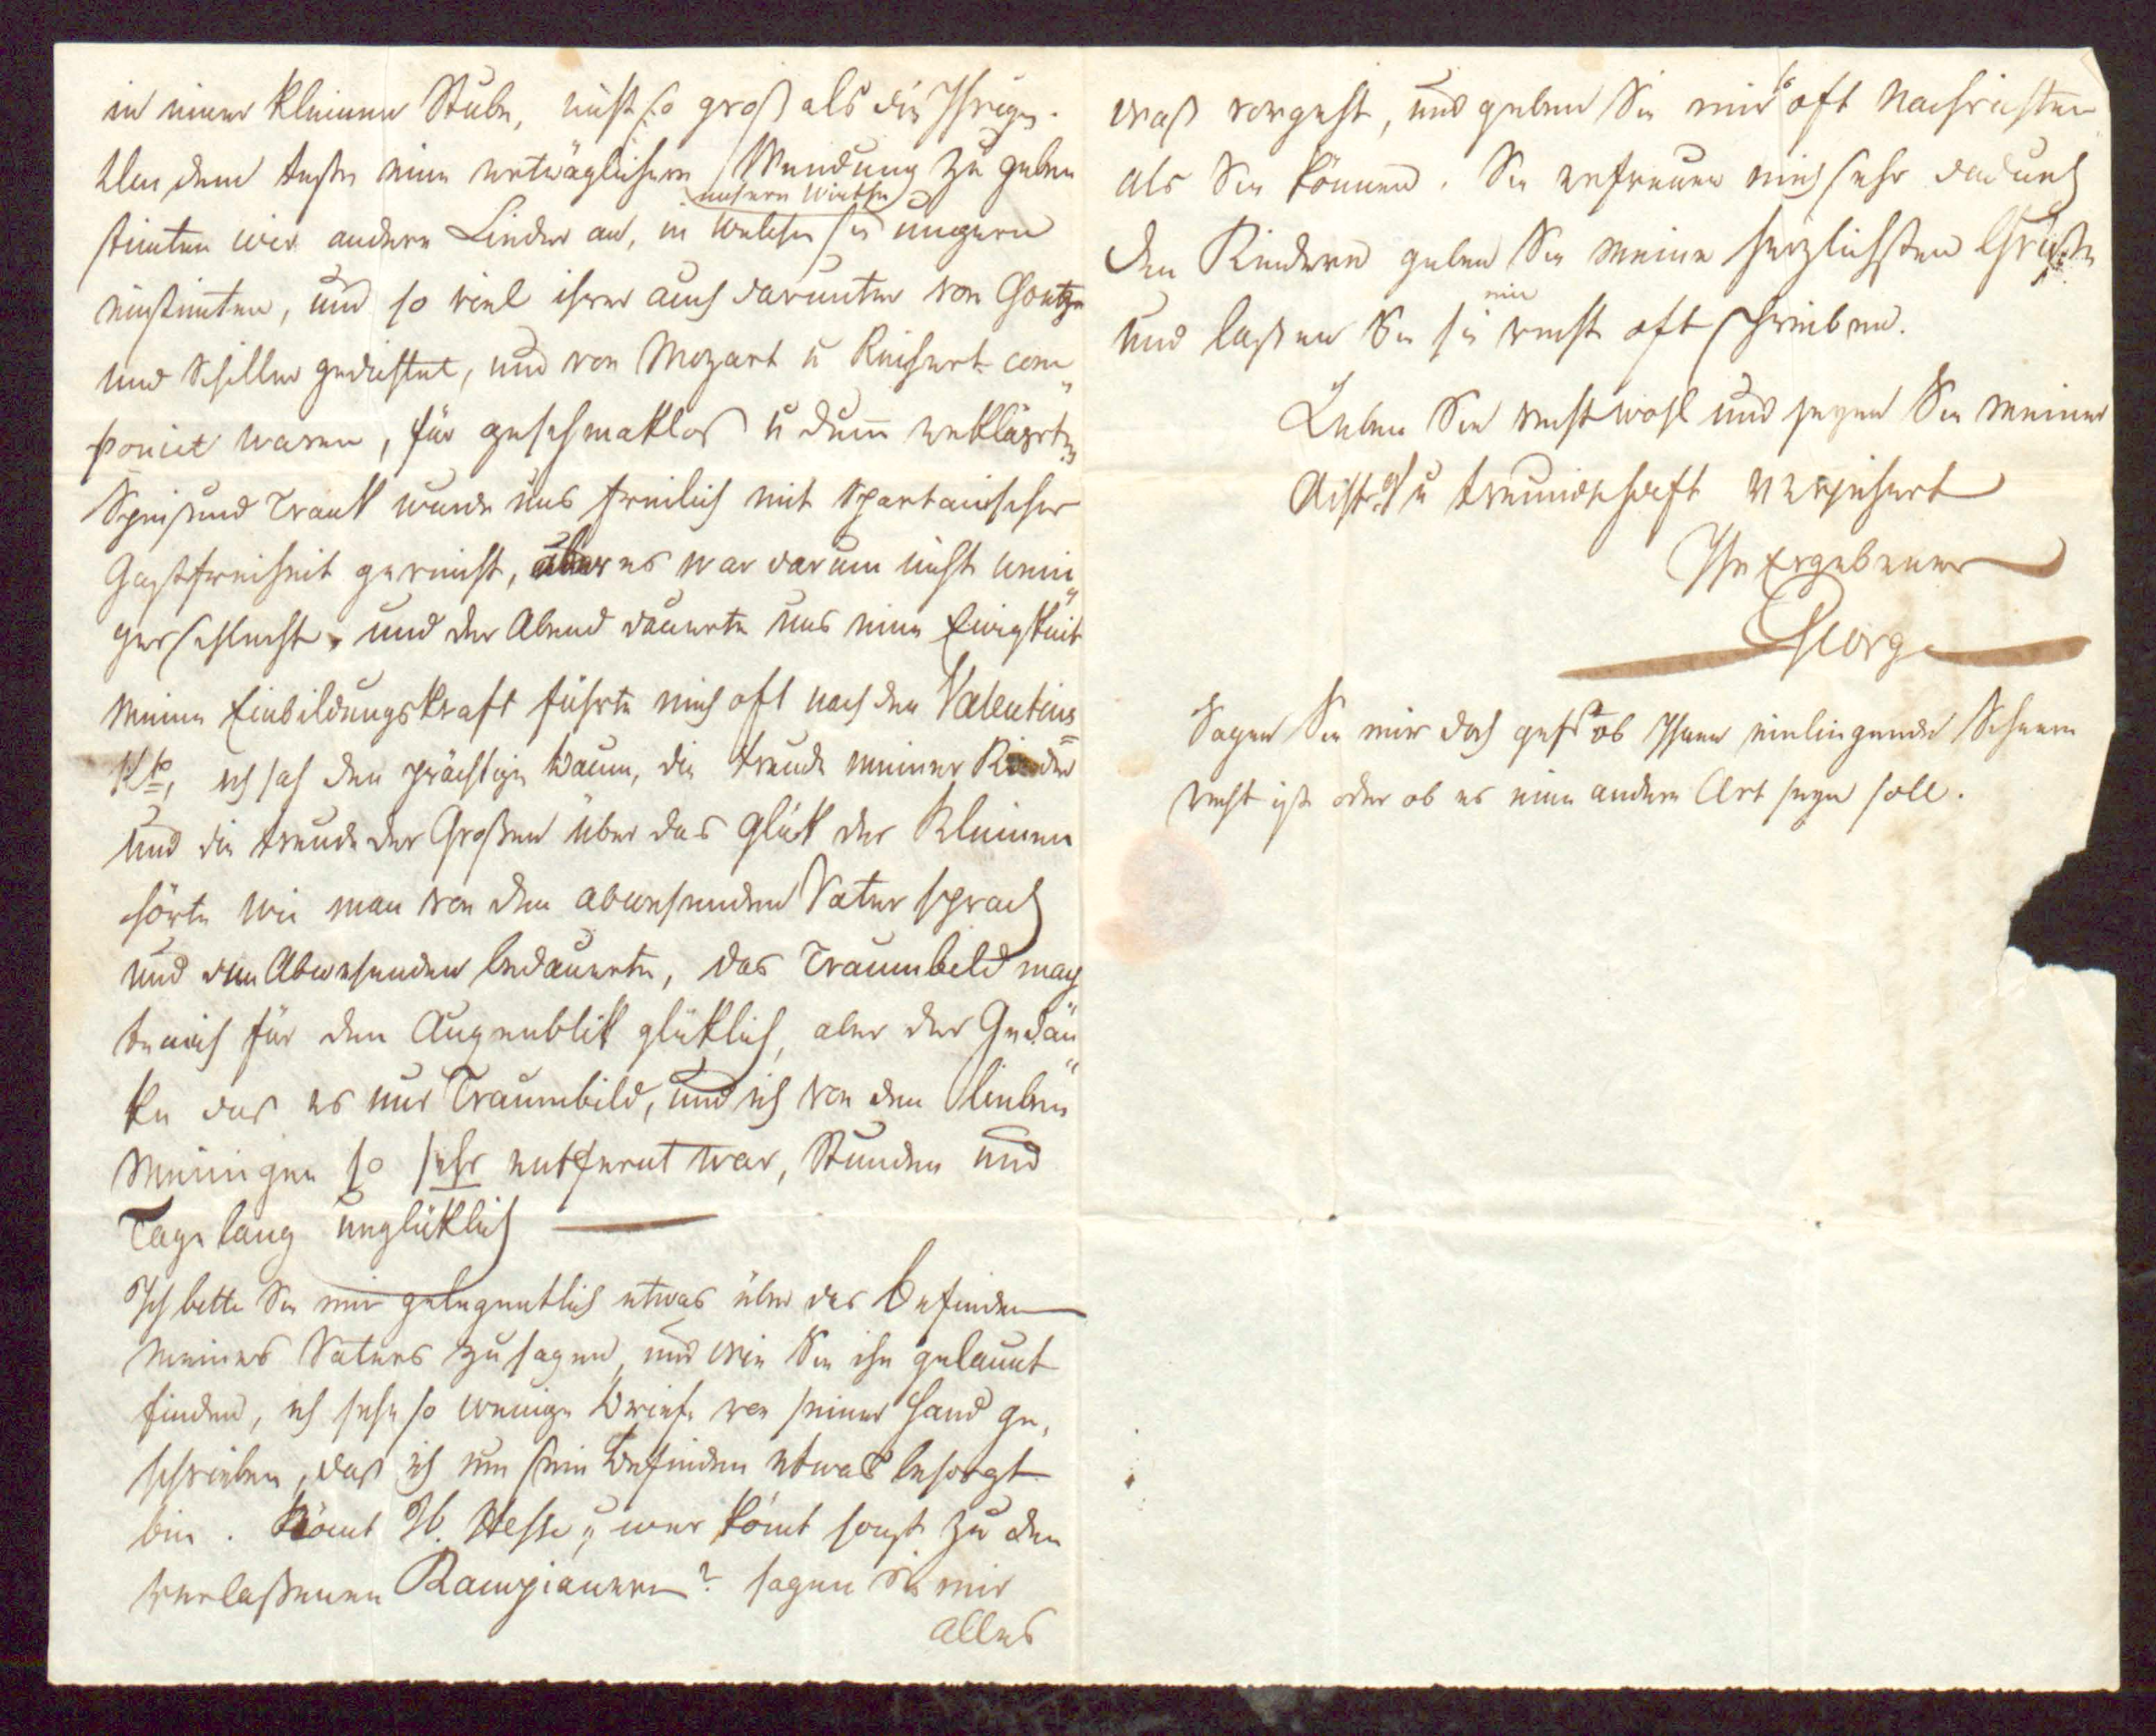 in einer kleinen Stube, nicht so groß als die Ihrige.
Um dem Feste eine erträglichere Wendung zu geben
stimten wir andere Lieder an, in welche sie ungern
unsere Wirthe
einstimten, und so viel ihrer auch darunter von Goethe
und Schiller gedichtet, und von Mozart u Reichart com„
ponirt waren, für geschmaklos u dum̄ erklärten
Speis und Trank wurde uns freilich mit Spartanischer
Gastfreiheit gereicht, aber es war darum nicht weni„
ger schlecht, und der Abend dauerte uns eine Ewigkeit
Meine Einbildungskraft führte mich oft nach den Valentins=
ich sah den prächtigen Baum, die Freude meiner Kinder
und die Freude der Großen über das Glük der Kleinen
hörte wie man von dem abwesenden Vater sprach
und den Abwesenden bedauerte, das Traumbild mach
te mich für den Augenblik glüklich, aber der Gedan„
ke das es nur Traumbild, und ich von den lieben
Meinigen so sehr entfernt war, Stunden und
Tage lang unglüklich —
Ich bitte Sie mir gelegentlich etwas über das Befinden
meines Vaters zu sagen, und wie Sie ihn gelaunt
finden, ich sehe so wenige Briefe von seiner Hand ge„
schrieben, das ich um sein Befinden etwas besorgt
bin. Kömt H. Hesse, u wer kömt sonst zu den
verlaßenen Rampianern? sagen Sie mir
alles
was vorgeht, und geben Sie mir so oft Nachrichten
als Sie können. Sie erfreuen mich sehr dadurch
den Kindern geben Sie meine herzlichsten Grüße
und laßen Sie sie mir recht oft schreiben.
Leben Sie recht wohl und seyen Sie meiner
Acht.g u Freundschaft versichert
Ihr Ergebener
George
Sagen Sie mir doch gefl ob Ihnen einliegende Scheere
recht ist oder ob es eine andere Art seyn soll.